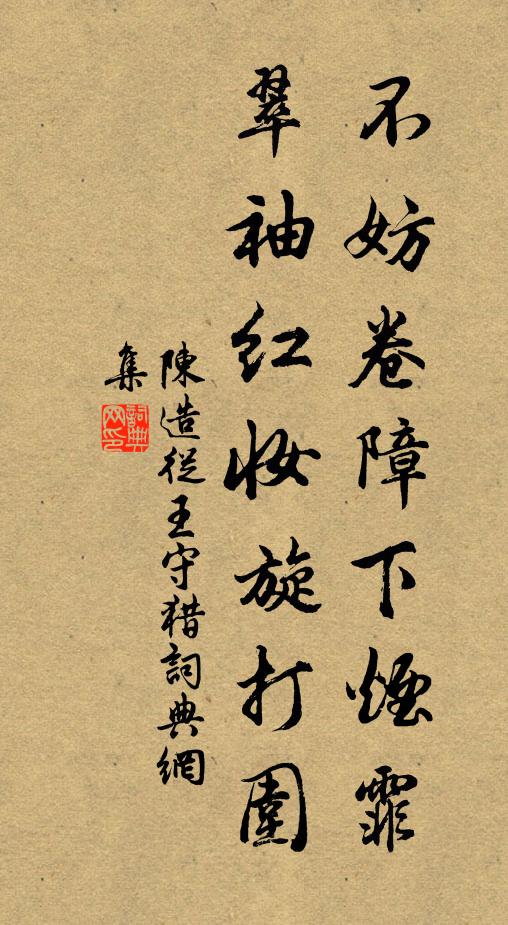 不妨卷障下煙霏
翠袖红妆旋打圍
陳造從王守猎詞典網
集
詞典网印